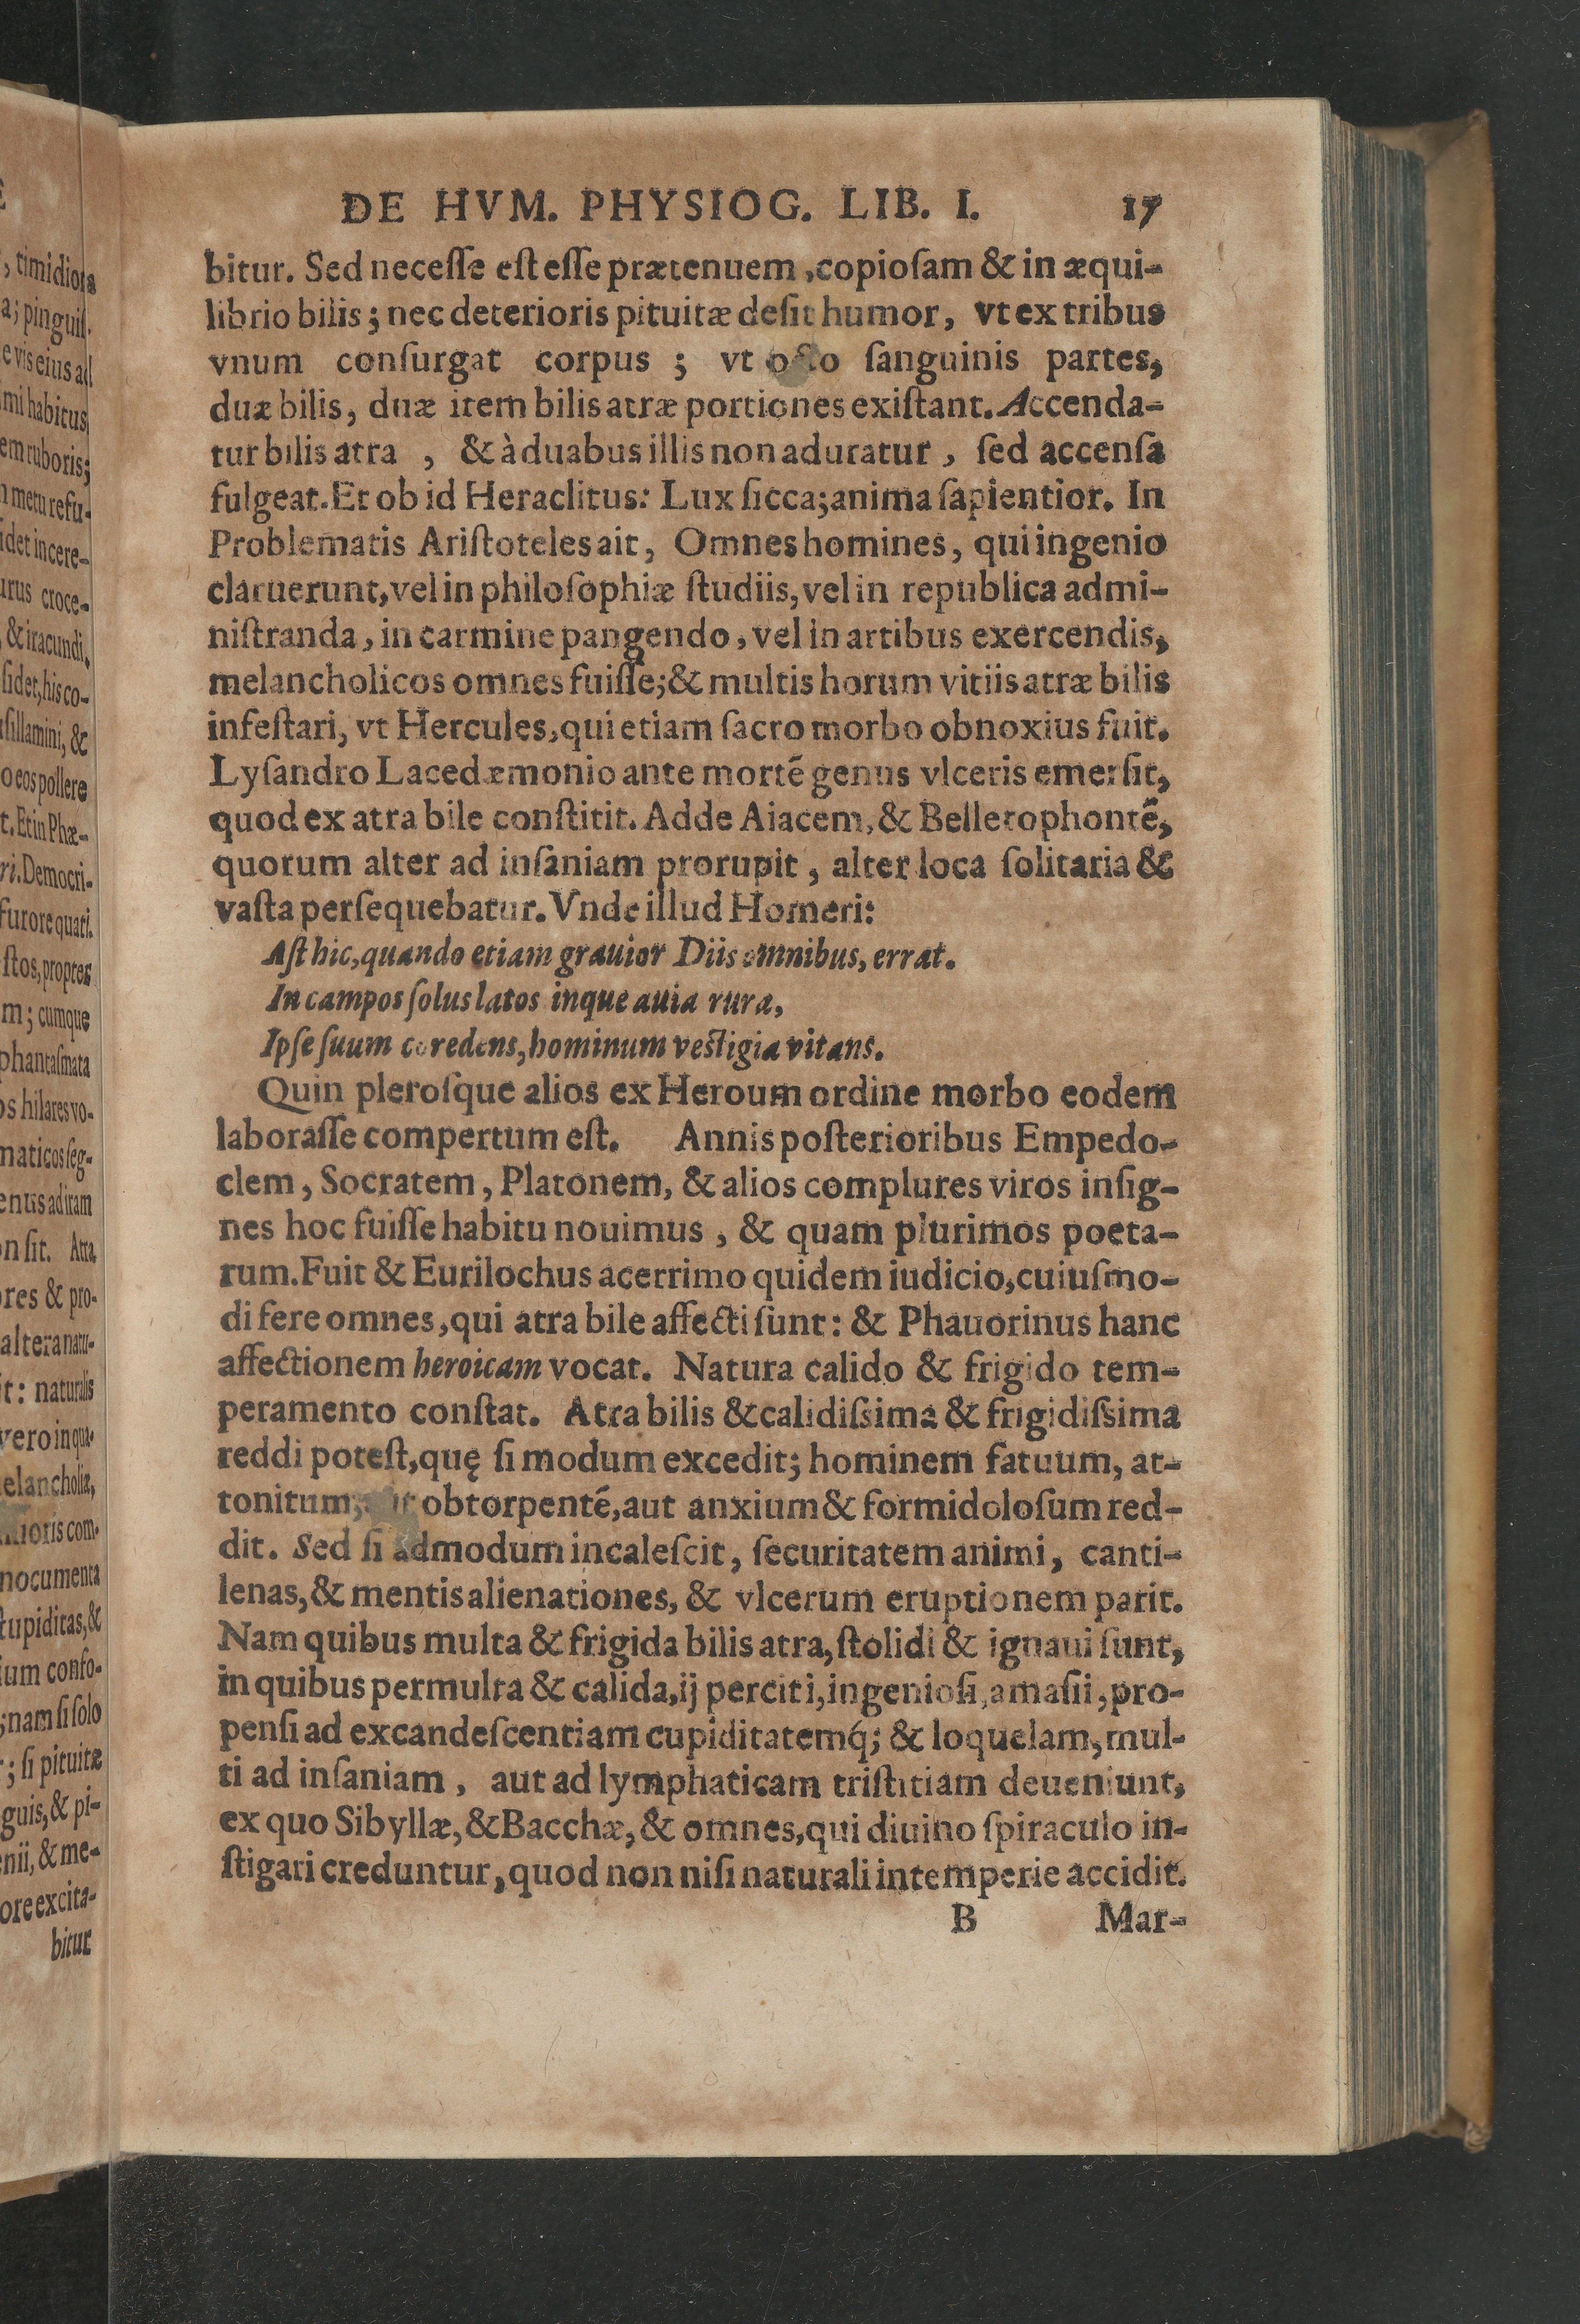 DE HVM. PHYSIOG. LIB. I. 17
bitur. Sed neceſſe eſt eſſe prætenuem, copioſam & in æqui-
librio bilis; nec deterioris pituitæ deſit humor, vt ex tribus
vnum conſurgat corpus; vt octo ſanguinis partes,
duæ bilis, duæ item bilis atræ portiones exiſtant. Accenda-
tur bilis atra, & à duabus illis non aduratur, ſed accenſa
fulgeat. Et ob id Heraclitus: Lux ſicca; anima ſapientior. In
Problematis Ariſtoteles ait, Omnes homines, qui ingenio
claruerunt, vel in philoſophiæ ſtudiis, vel in republica admi-
niſtranda, in carmine pangendo, vel in artibus exercendis,
melancholicos omnes fuiſſe; & multis horum vitiis atræ bilis
infeſtari, vt Hercules, qui etiam ſacro morbo obnoxius fuit.
Lyſandro Lacedæmonio ante mortē genus vlceris emerſit,
quod ex atra bile conſtitit. Adde Aiacem, & Bellerophontē,
quorum alter ad inſaniam prorupit, alter loca ſolitaria &
vaſta perſequebatur. Vnde illud Homeri:
Aſt hic, quando etiam grauior Diis omnibus, errat.
In campos ſolus latos inque auia rura,
Ipſe ſuum cor edens, hominum veſtigia vitans.
Quin pleroſque alios ex Heroum ordine morbo eodem
laboraſſe compertum eſt. Annis poſterioribus Empedo-
clem, Socratem, Platonem, & alios complures viros inſig-
nes hoc fuiſſe habitu nouimus, & quam plurimos poeta-
rum. Fuit & Eurilochus acerrimo quidem iudicio, cuiuſmo-
di fere omnes, qui atra bile affecti ſunt: & Phauorinus hanc
affectionem heroicam vocat. Natura calido & frigido tem-
peramento conſtat. Atra bilis & calidiſsima & frigidiſsima
reddi poteſt, quę ſi modum excedit; hominem fatuum, at-
tonitum, obtorpenté, aut anxium & formidoloſum red-
dit. Sed ſi admodum incaleſcit, ſecuritatem animi, canti-
lenas, & mentis alienationes, & vlcerum eruptionem parit.
Nam quibus multa & frigida bilis atra, ſtolidi & ignaui ſunt,
in quibus permulta & calida, ij perciti, ingenioſi, amaſii, pro-
penſi ad excandeſcentiam cupiditatemq́; & loquelam, mul-
ti ad inſaniam, aut ad lymphaticam triſtitiam deueniunt,
ex quo Sibyllæ, & Bacchæ, & omnes, qui diuino ſpiraculo in-
ſtigari creduntur, quod non niſi naturali intemperie accidit.
B Mar-